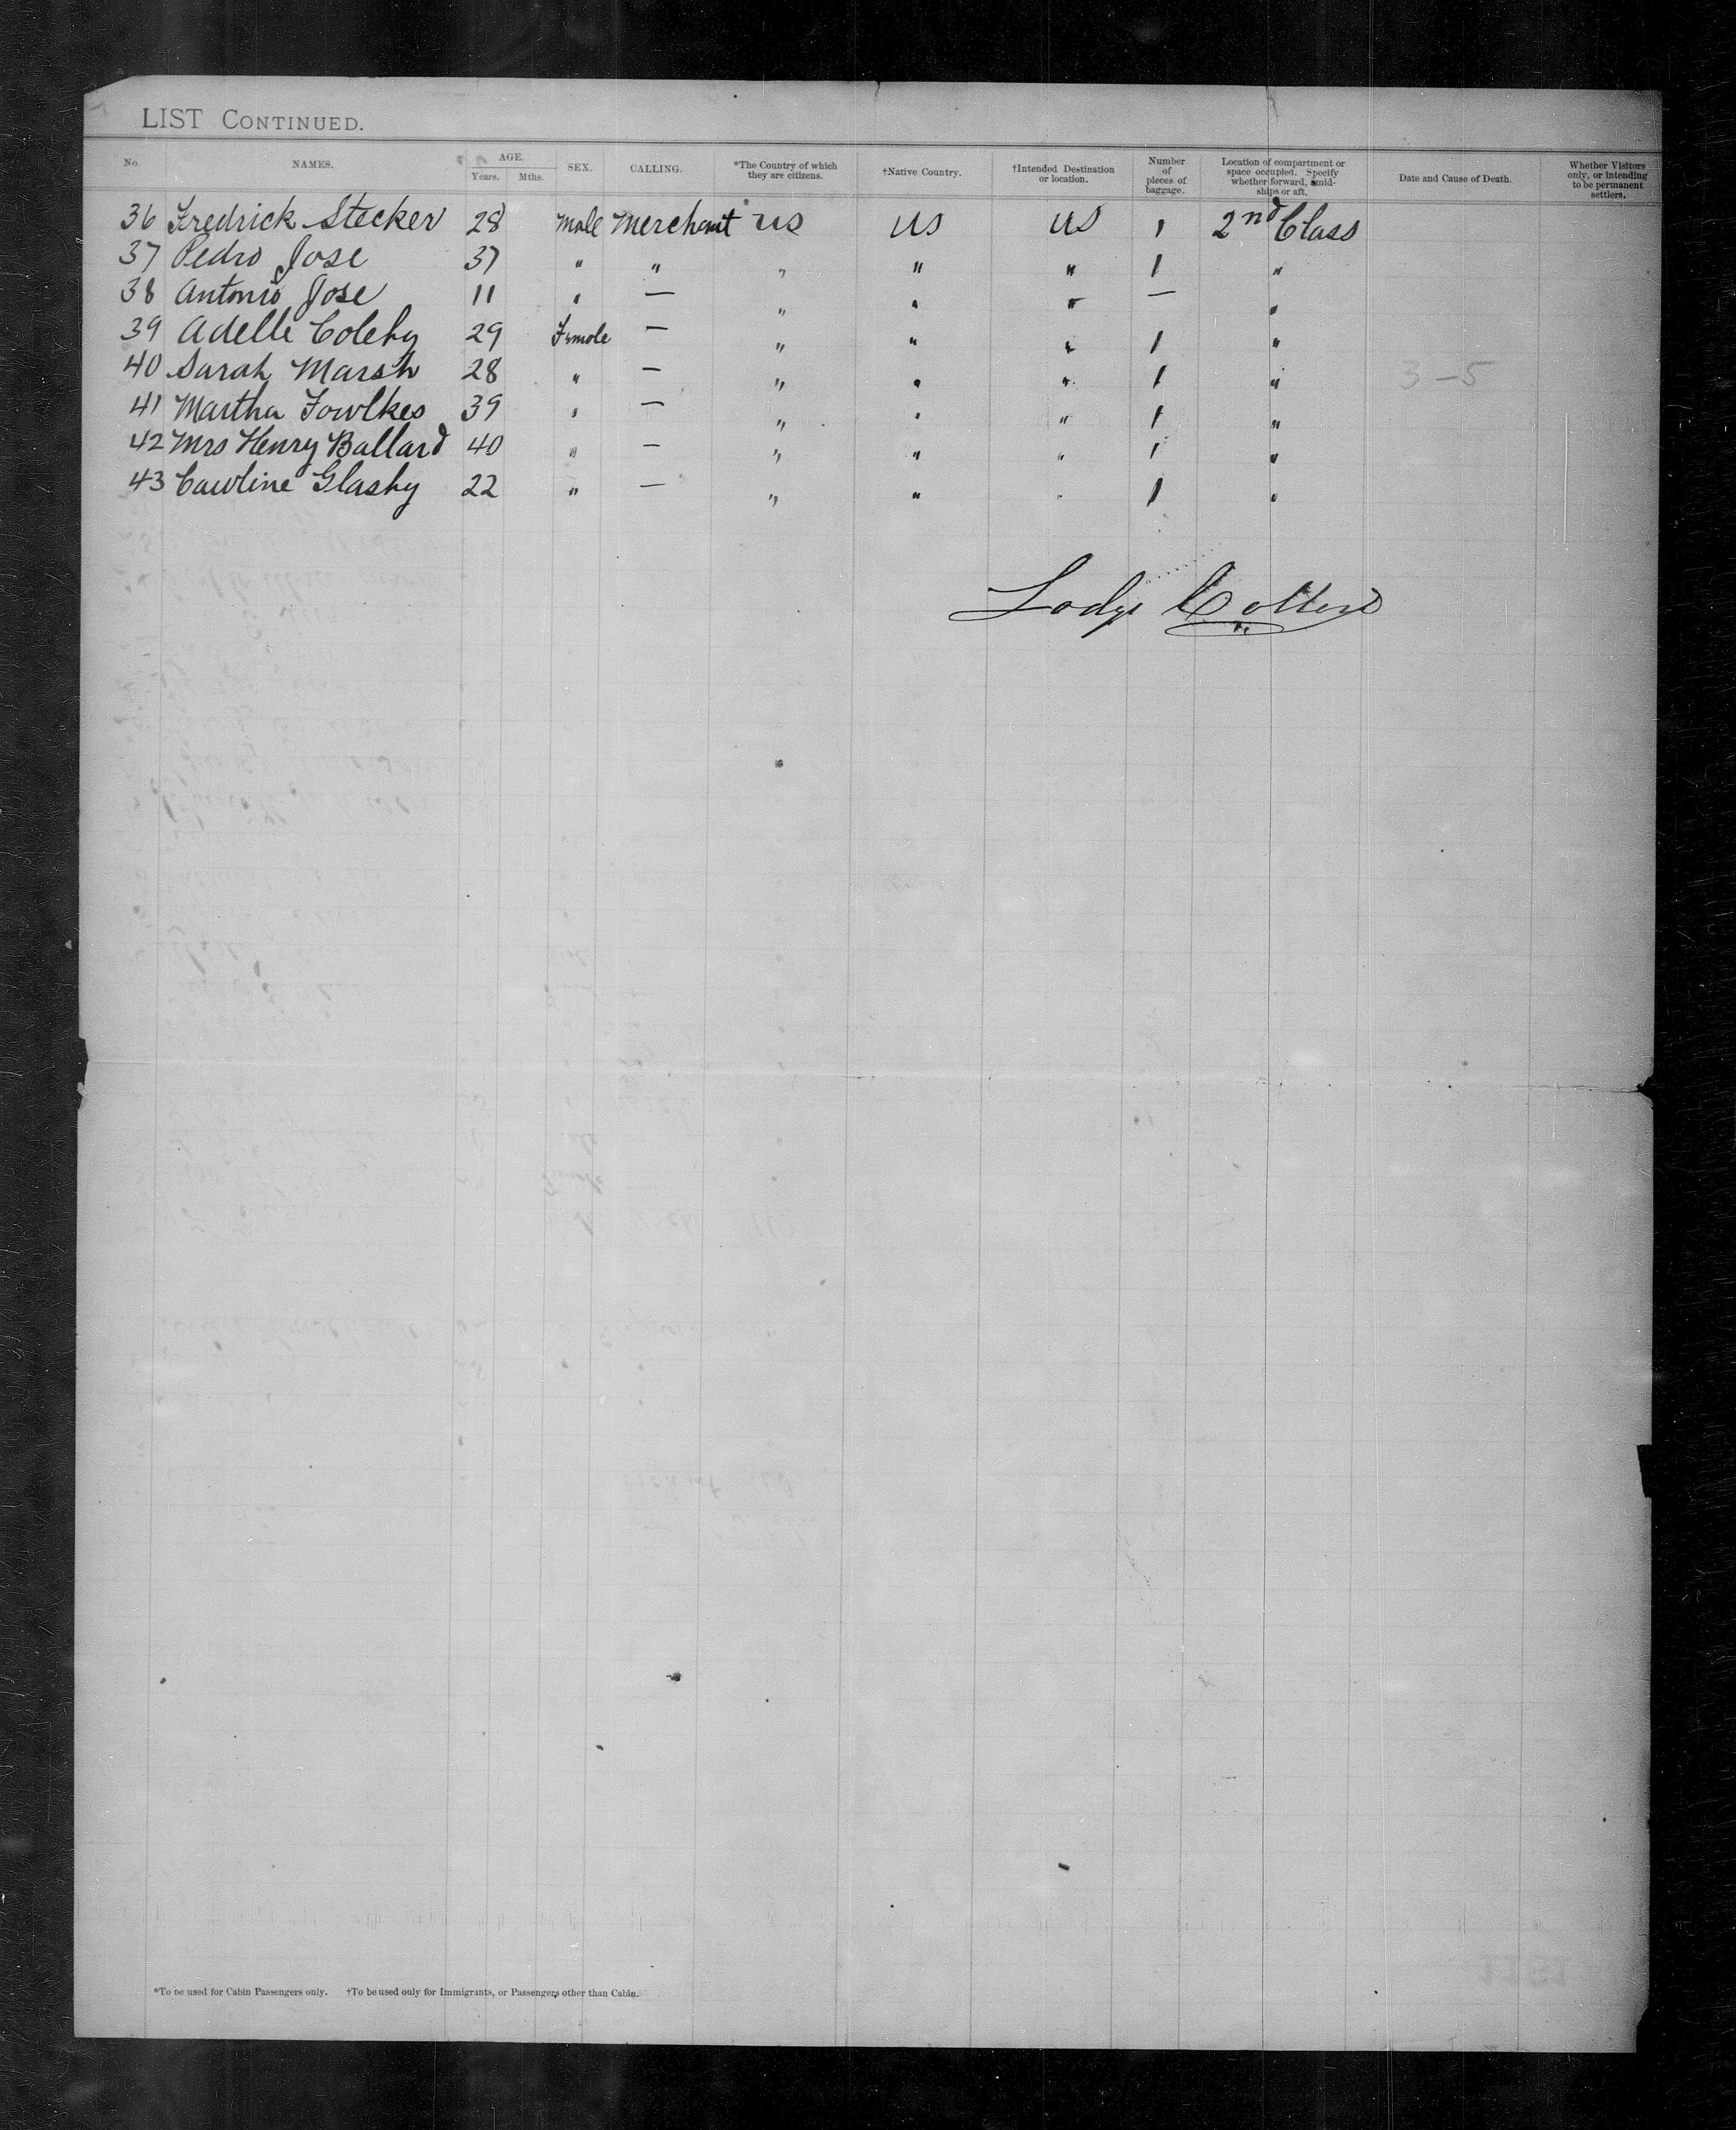 LIST CONTINUED.
No NAMES. AGE. Years. Mths. SEX. CALLING. *The Country of which they are citizens. †Native Country. †Intended Destination or location. Number of pieces of baggage. Location of compartment or space occupied. Specify whether forward, amidships or aft. Date and Cause of Death. Whether Visitors only, or intending to be permanent settlers.
36 Fredrick Stecker 28 Male Merchant US US US 1 2nd Class
37 Pedro Jose 37 " " " " " 1 "
38 Antonio Jose 11 " — " " " — "
39 Adelle Coleby 29 Female — " " " 1 "
40 Sarah Marsh 28 " — " " " 1 " 3-5
41 Martha Fowlkes 39 " — " " " 1 "
42 Mrs Henry Ballard 40 " — " " " 1 "
43 Glashy 22 " — " " " 1 "
*To be used for Cabin Passengers only. †To be used only for Immigrants, or Passengers other than Cabin.